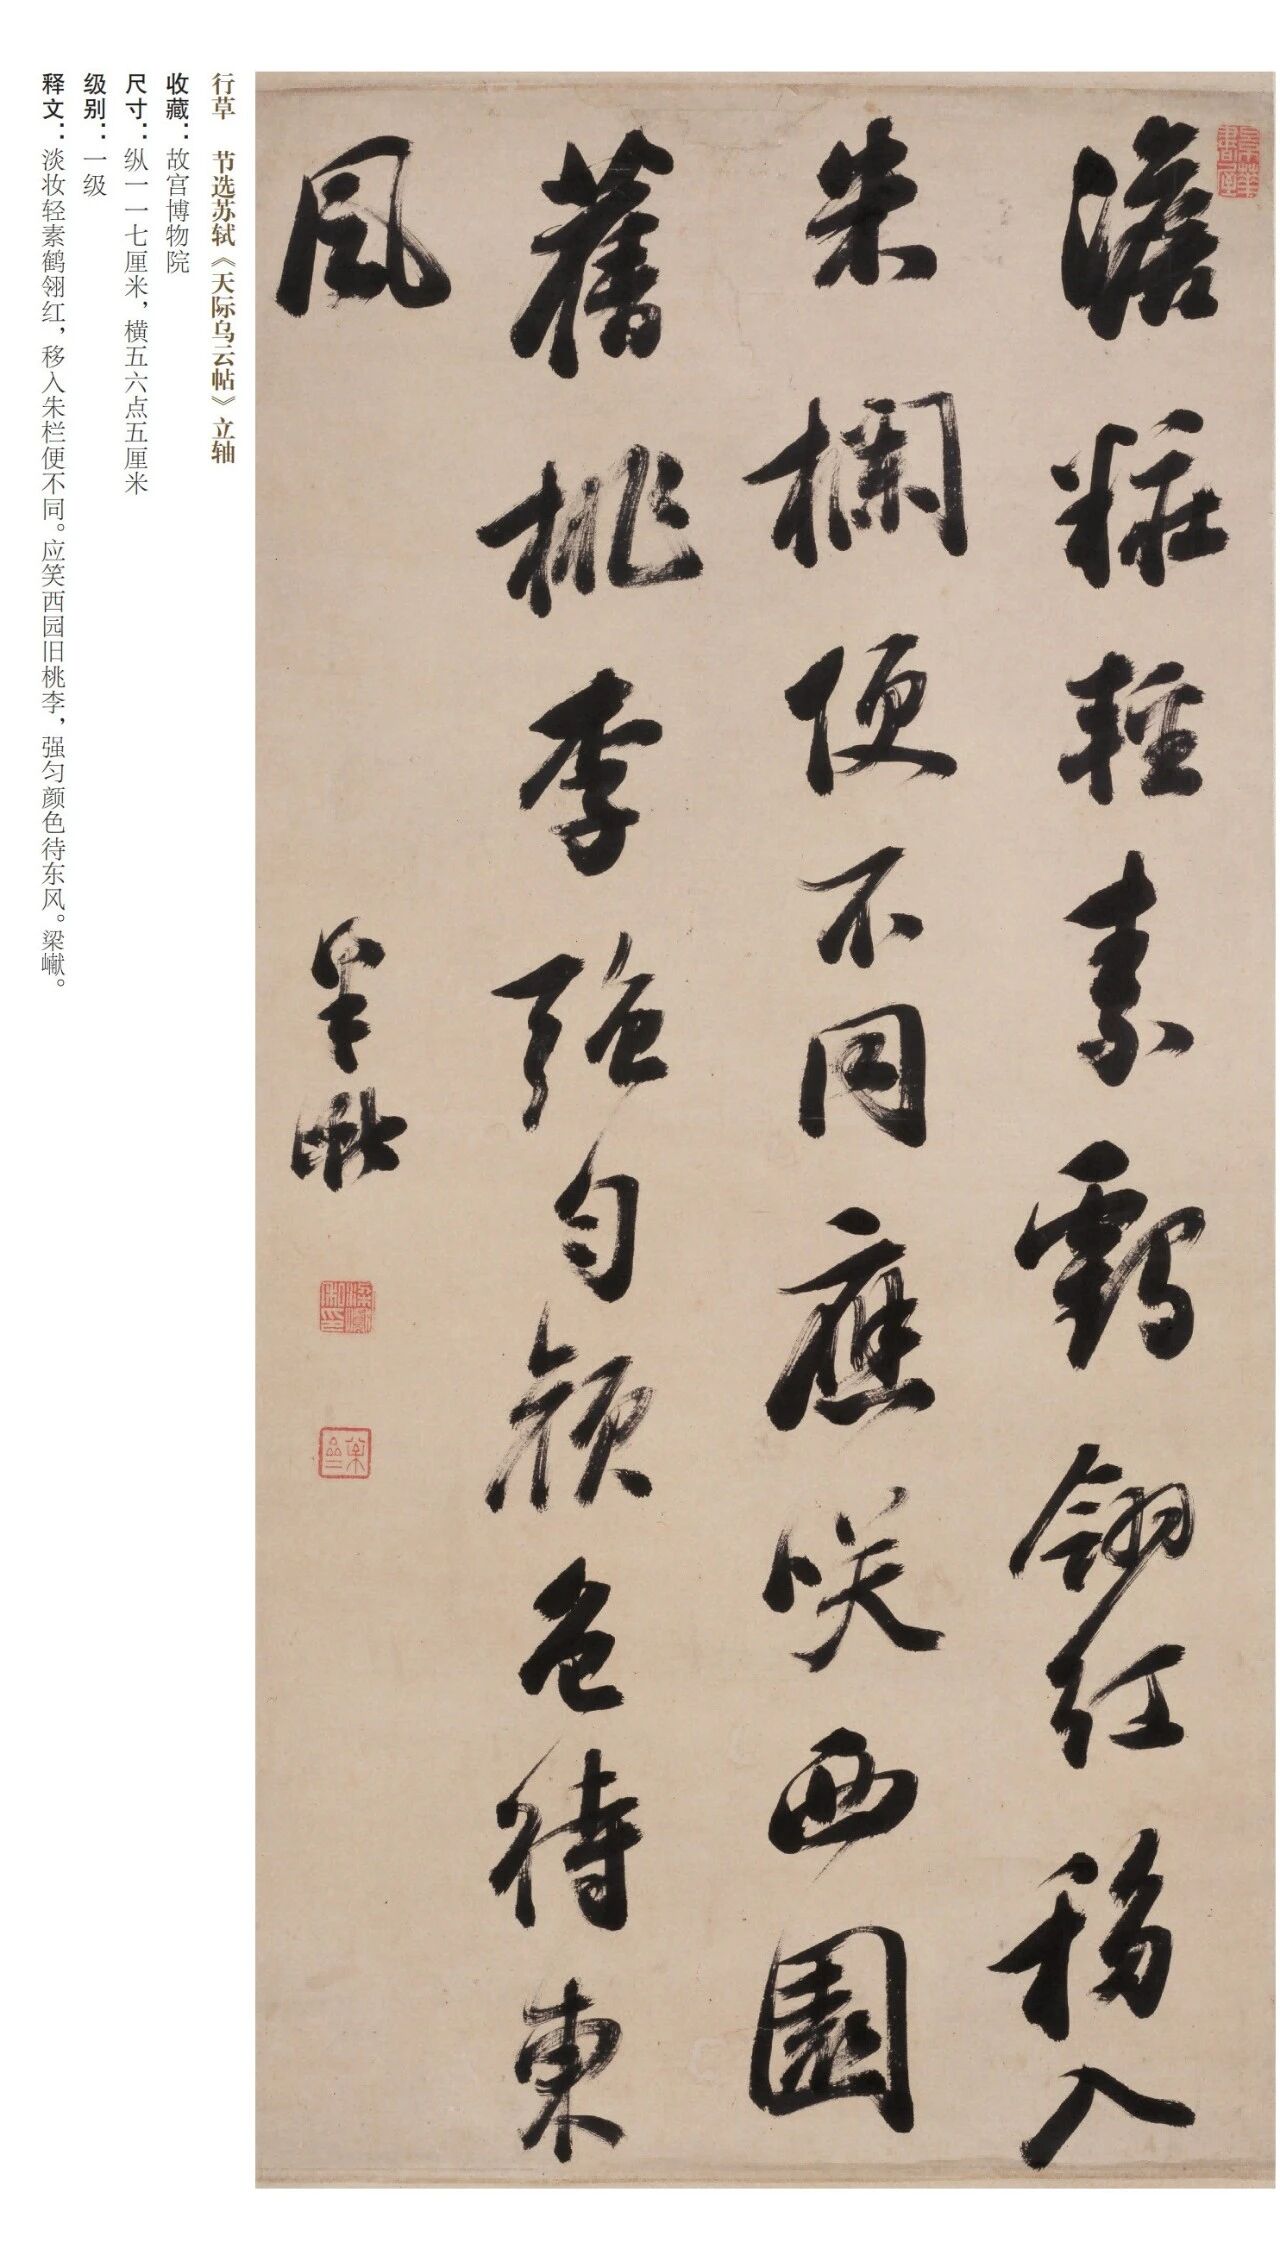 澹粧輕素鶴翎红移入
朱欄便不同應咲西園
舊桃李強勻顔色待東
風
梁巘
行草 节选苏轼《天际乌云帖》立轴
收藏：故宫博物院
尺寸：纵一一七厘米，横五六点五厘米
级别：一级
释文：淡妆轻素鹤翎红，移入朱栏便不同。应笑西园旧桃李，强匀颜色待东风。梁巘。